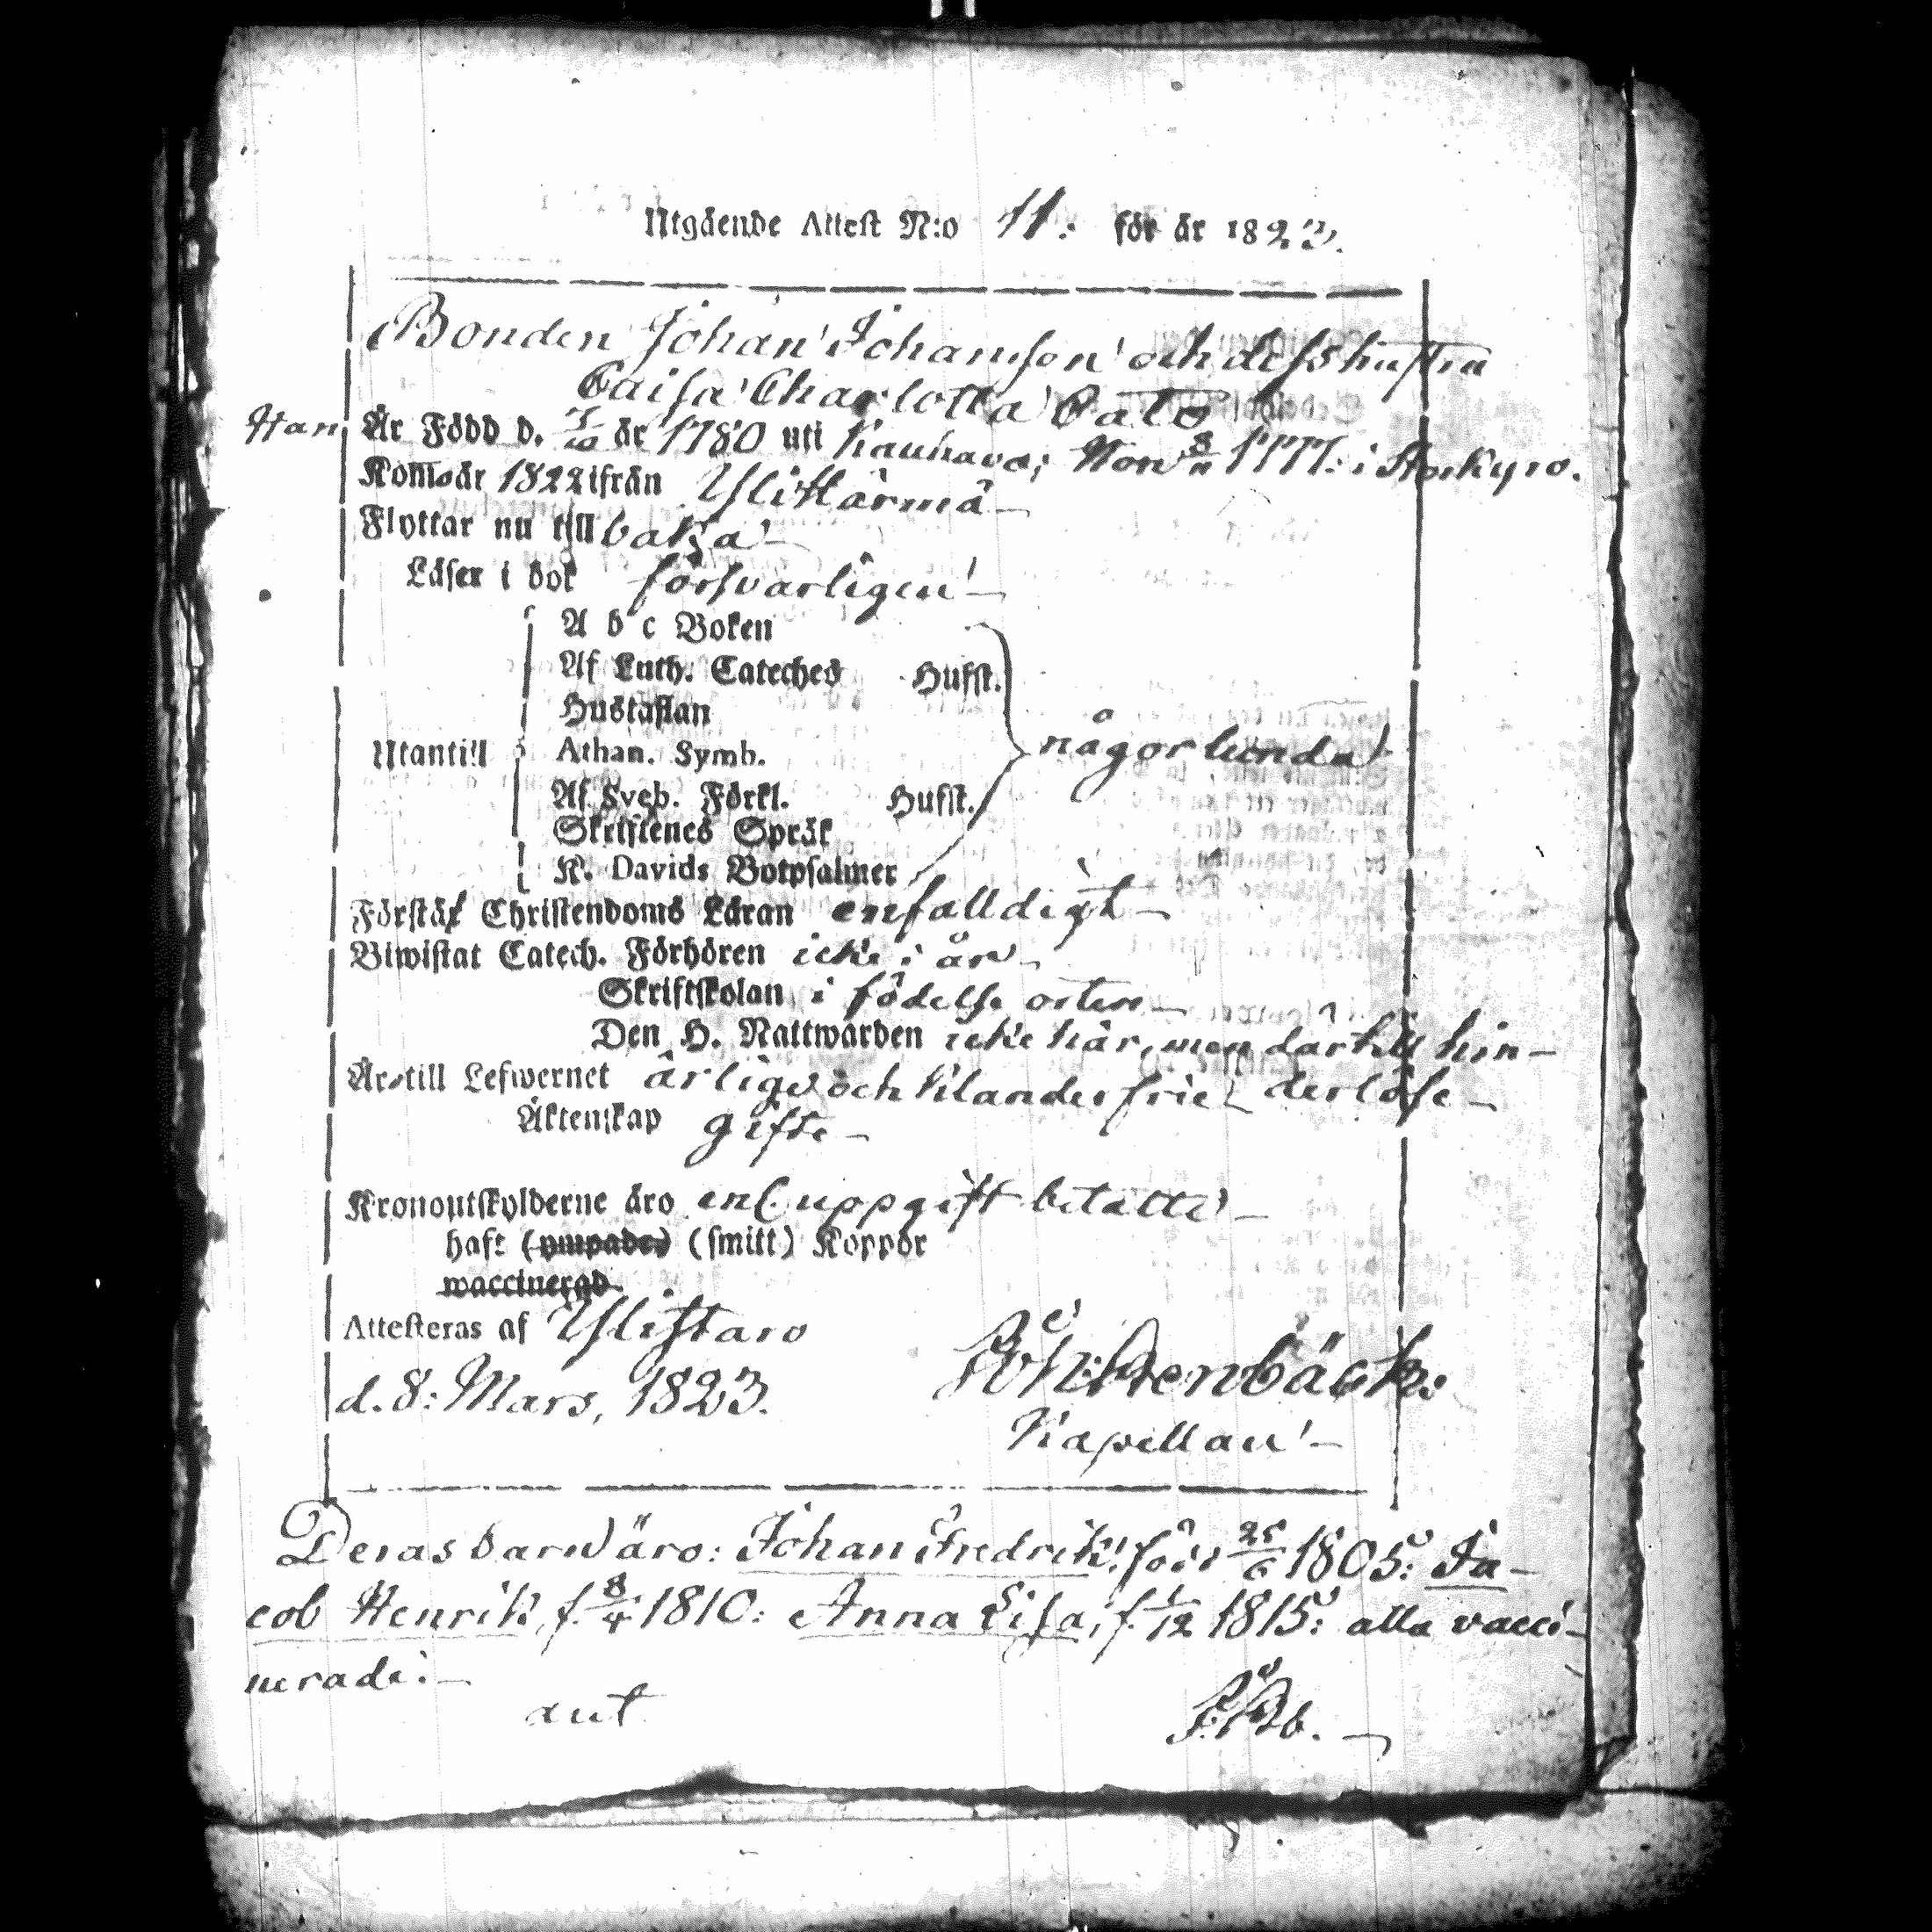 Utgående Attest N:o 11: för år 1823.
Bonden Johan Johansson och dess hustru
Caisa Charlotta Calo
Han Är Född d. år 1780 uti Kauhava; Hon 8/11 1777: i Storkyro.
Kom år 1822 ifrån Ylihärmä
Flyttar nu till baka
Läser i bok försvarligen
A b c Boken
Af Luth. Cateches Hufst.
Hustaflan
Utantill Athan. Symb. någorlunda
Af Sveb. Förkl. Hufst.
Skriftenes Språk
K. Davids Botpsalmer
Förstår Christendoms Läran enfalldigt
Biwistat Catech. Förhören icke i år
Skriftskolan i födelse orten
Den H. Nattwarden icke här, men därtill hin-
Är till Lefwernet ärlige och klanderfrie derlöse
Äktenskap gifte
Kronoutskylderne äro enl. uppgift betalte
haft (ympade) (smitt) Koppor
waccinerad
Attesteras af Ylistaro
d. 8: Mars, 1823.
Kapellan
Deras barn äro: Johan Fredrik, född 25/6 1805: Ja-
cob Henrik, f. 8/4 1810: Anna Lisa, f. 1/12 1815: alla vacci-
nerade:
ut